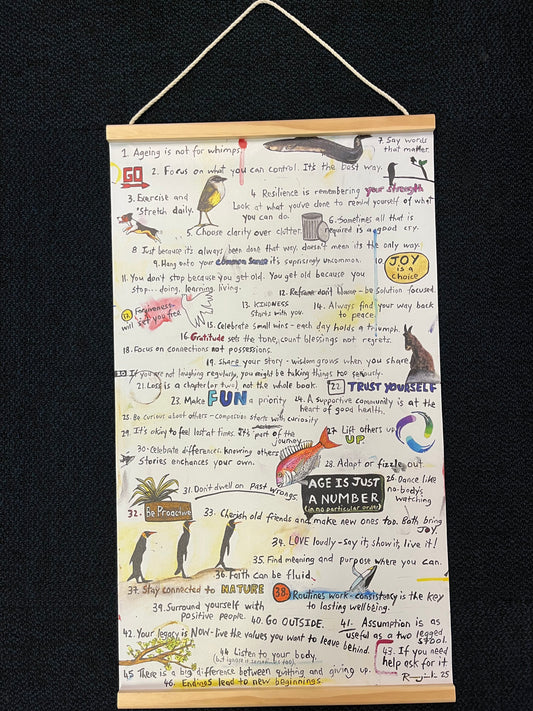 1. Ageing is not for whimps.
7. Say words
that matter.
GO
2. Focus on what you can control. It's the best way.
3. Exercise and
stretch daily.
4. Resilience is remembering your strength
Look at what you've done to remind yourself of what
you can do.
5. Choose clarity over clutter.
6. Sometimes all that is
required is a good cry.
8 Just because it's always been done that way, doesn't mean it's the only way.
9. Hang onto your common sense it's suprisingly uncommon.
10
JOY
is a
choice
11. You don't stop because you get old. You get old because you
stop... doing, learning, living.
12. Reframe don't blame - be solution focused.
Forgiveness
will set you free
13. KINDNESS
starts with you.
14. Always find your way back
to peace.
15. Celebrate small wins - each day holds a triumph.
16. Gratitude sets the tone, count blessings not regrets.
18. Focus on connections not possessions.
19. Share your story - wisdom grows when you share
20 If you are not laughing regularly, you might be taking things too seriously.
21. Loss is a chapter (or two) not the whole book.
22 TRUST YOURSELF
23. Make FUN a priority
24. A supportive community is at the
heart of good health.
25. Be curious about others - compassion starts with curiosity
29. It's oking to feel lost at times. It's part of the
journey
27 Lift others up
UP
30. Celebrate differences. Knowing others
stories enchances your own.
28. Adapt or fizzle out
31. Don't dwell on past wrongs.
AGE IS JUST
A NUMBER
(in no particular order)
26. Dance like
no-body's
watching
32. be Proactive
33. Cherish old friends and make new ones too. Both bring
JOY.
34. LOVE loudly - say it, show it, live it!
35. Find meaning and purpose where you can.
36. Faith can be fluid.
37. Stay connected to NATURE
38. Routines work - consistency is the key
to lasting wellbeing.
39. Surround yourself with
positive people.
40. GO OUTSIDE.
41. Assumption is as
useful as a two legged
stool.
42. Your legacy is NOW - live the values you want to leave behind.
43. If you need
help ask for it.
44 Listen to your body.
(but ignore it sometimes too).
45 There is a big difference between quitting and giving up.
25
46. Endings lead to new beginnings.